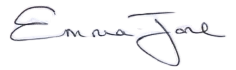 Emma Jane